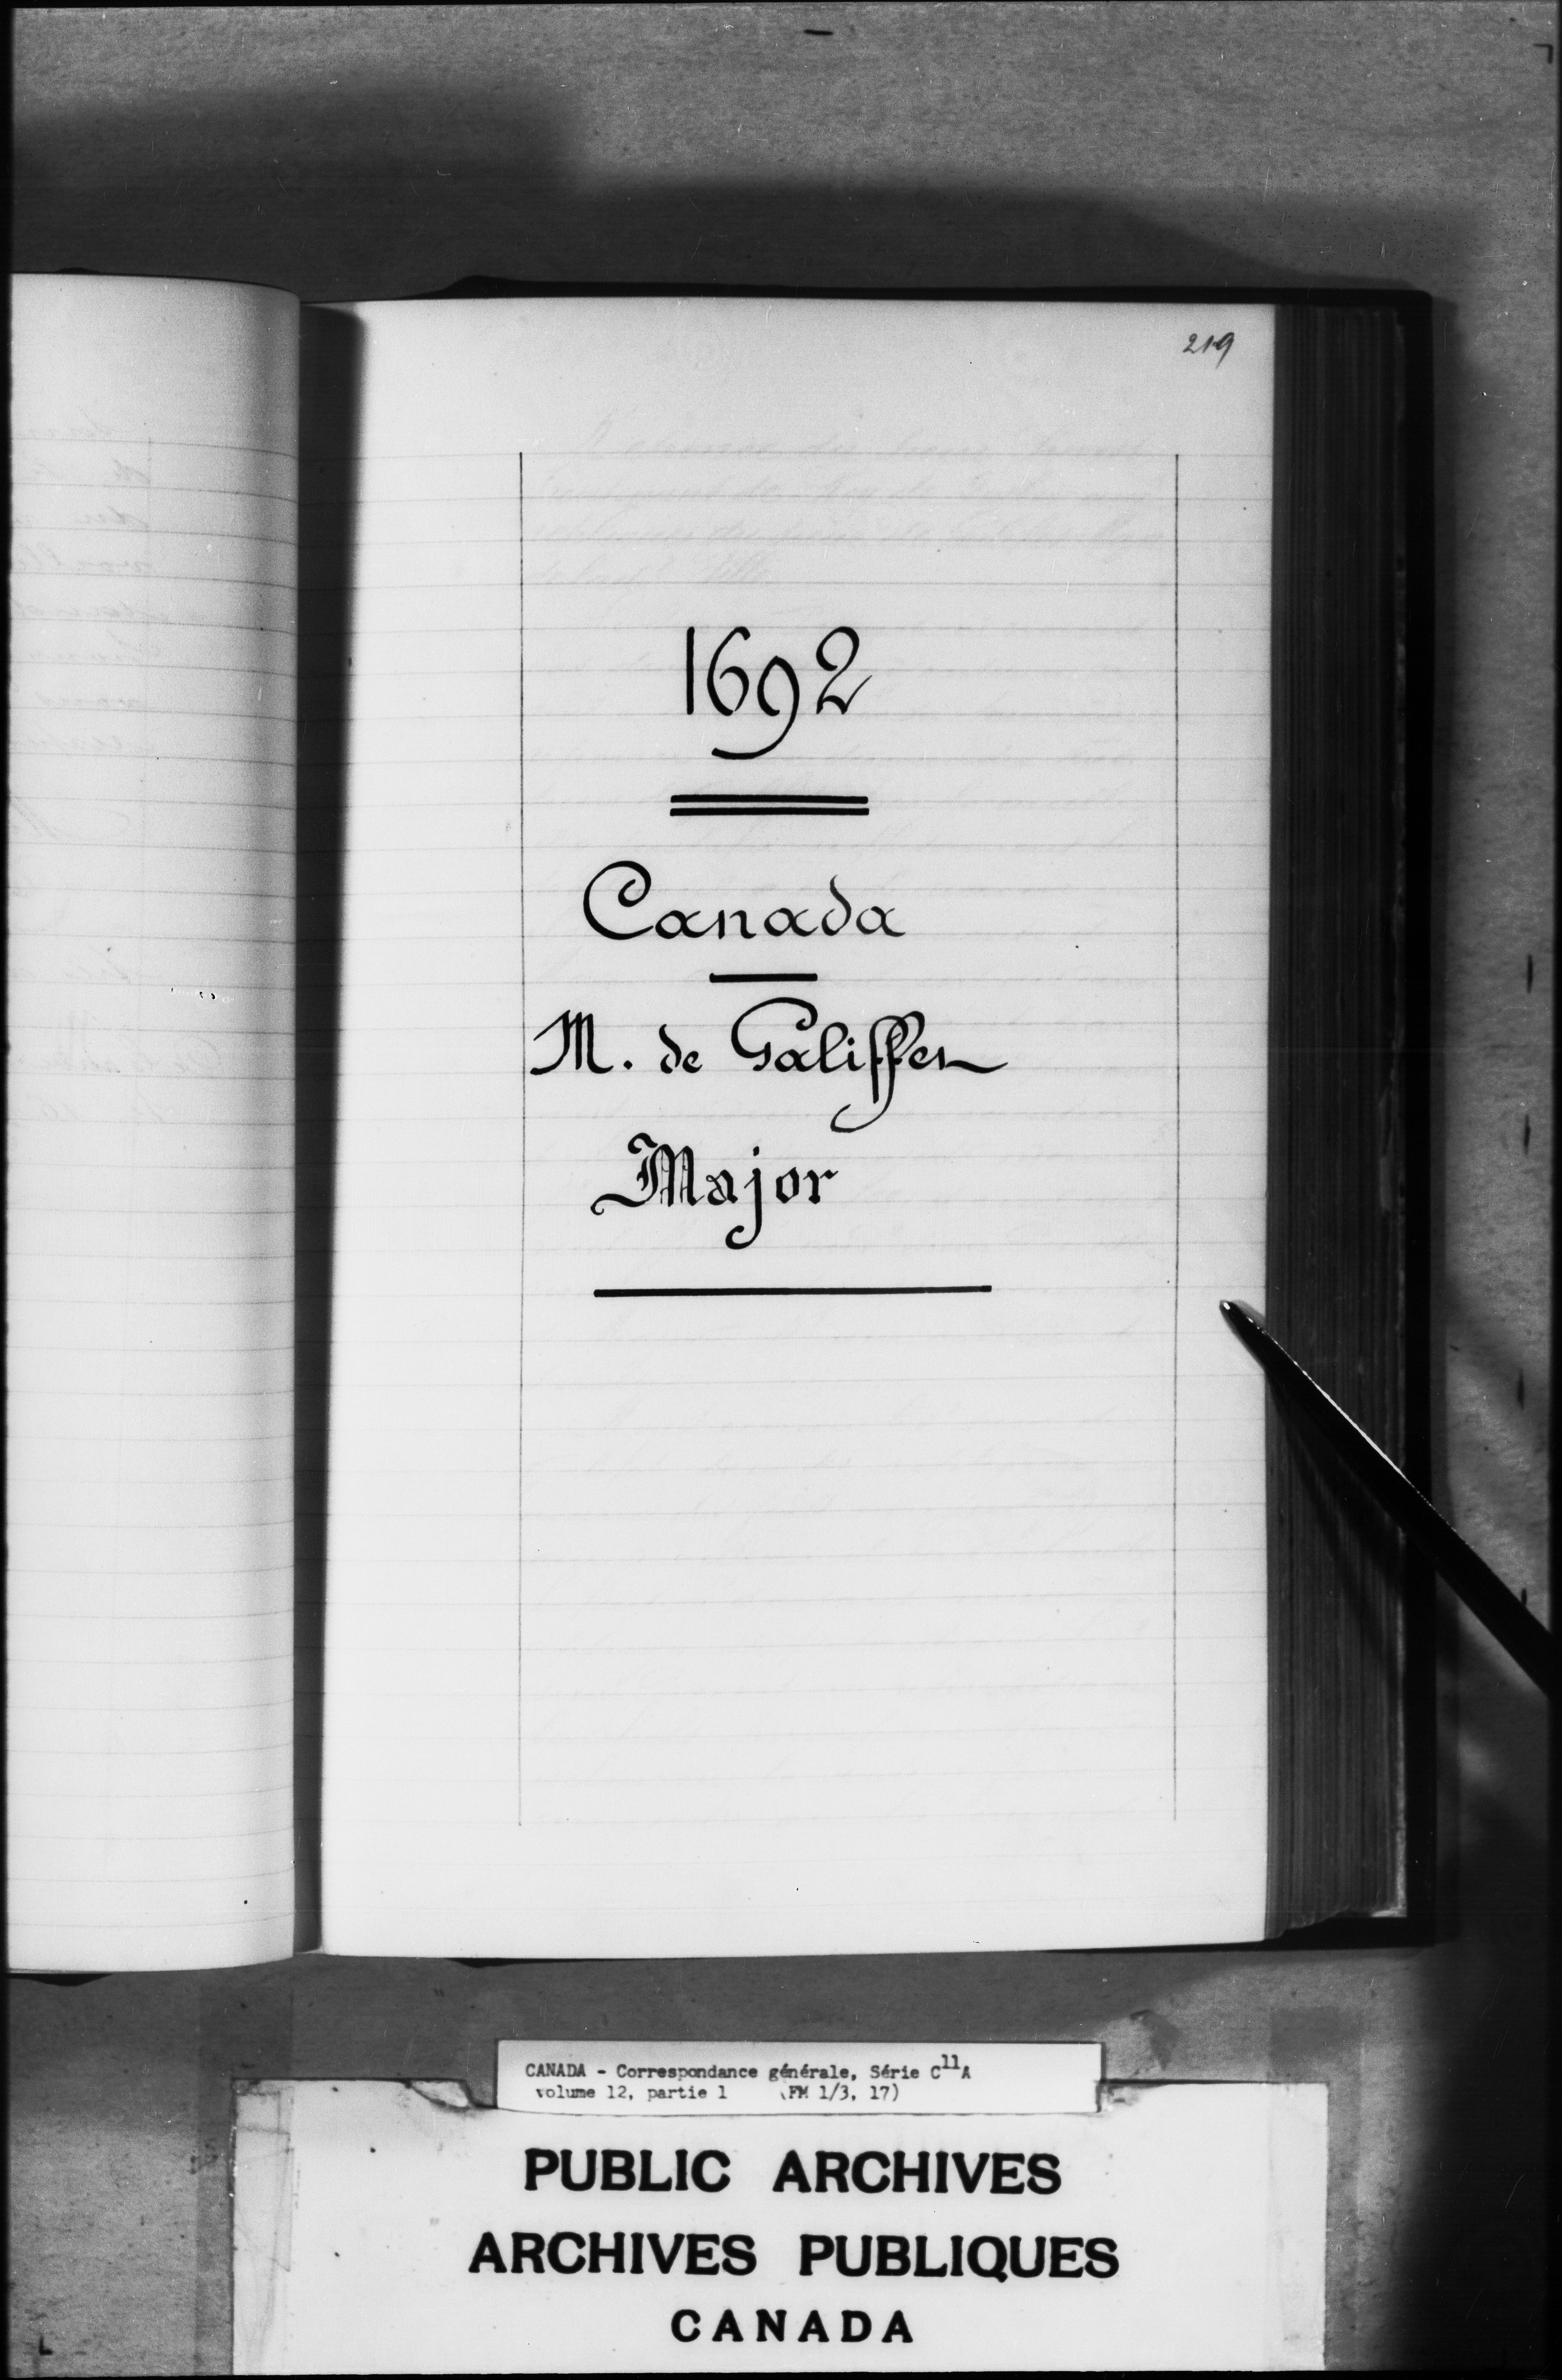 219
1692
Canada
M. de Galiffer
Major
CANADA - Correspondance générale, Série C11A
volume 12, partie 1 (FM 1/3, 17)
PUBLIC ARCHIVES
ARCHIVES PUBLIQUES
CANADA